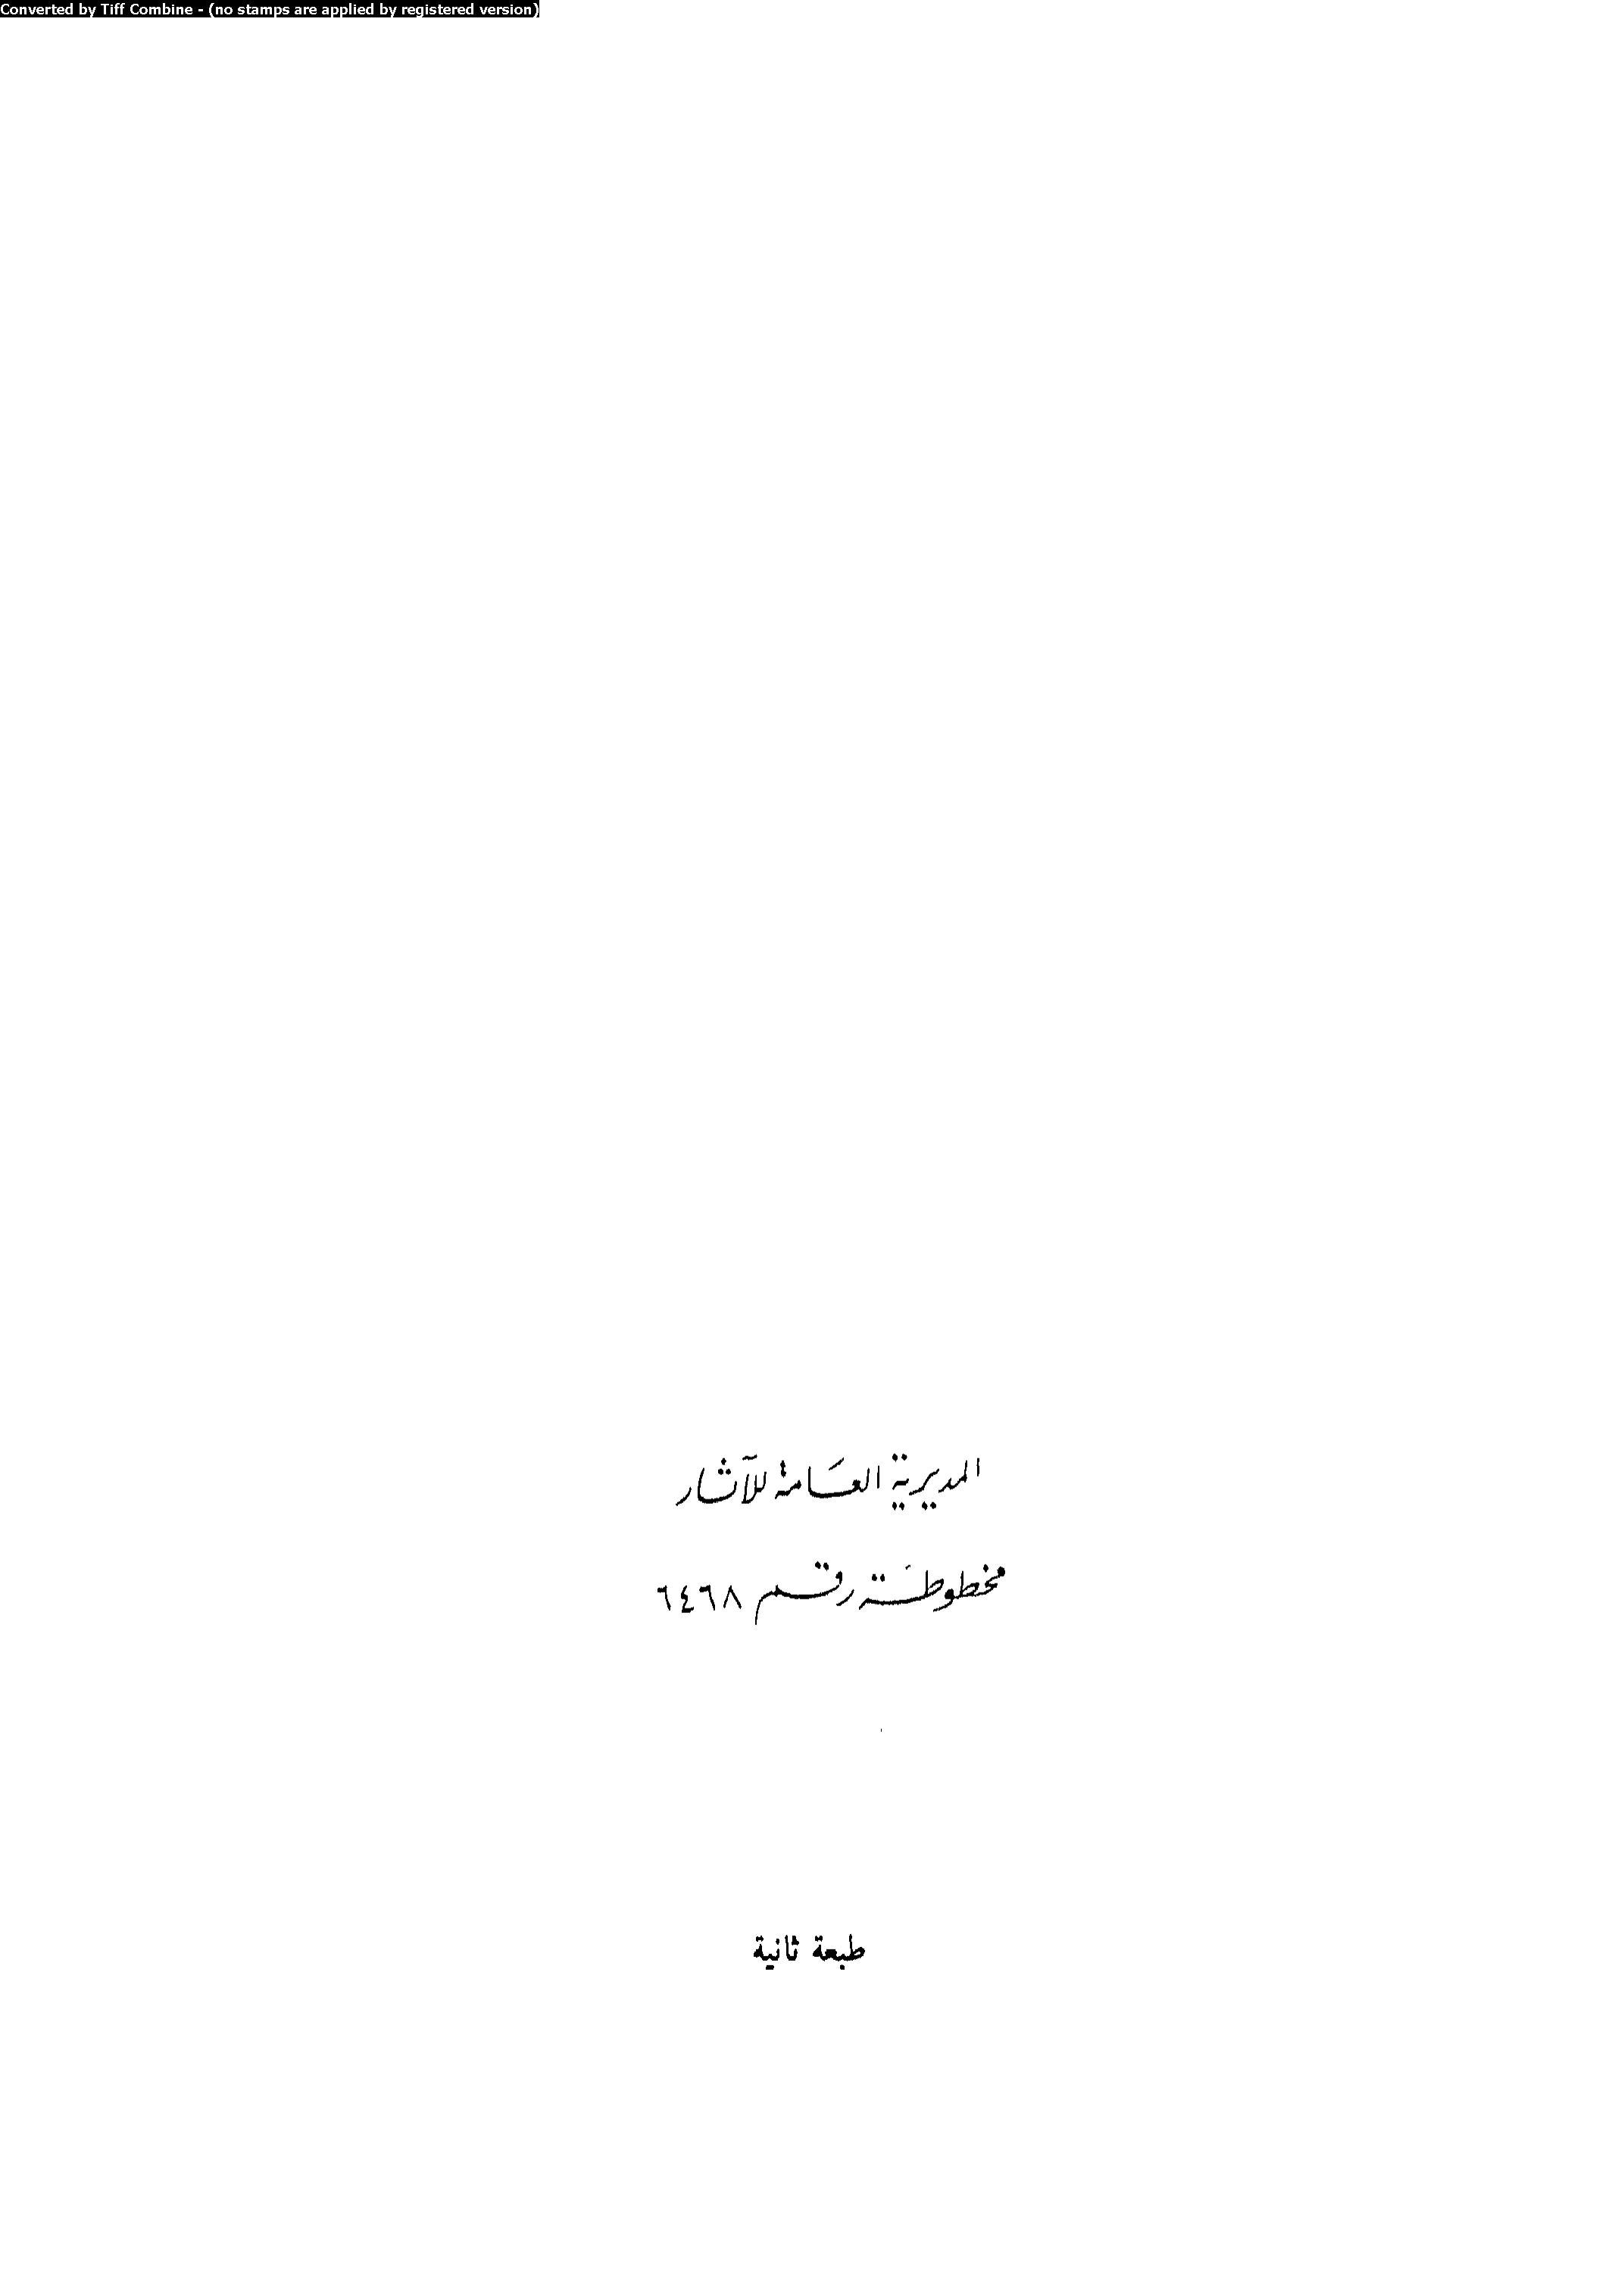 Converted by Tiff Combine - (no stamps are applied by registered version)
المديرية العَامة للآثار
مخطوطَة رقم ٦٤٦٨
طبعة ثانية